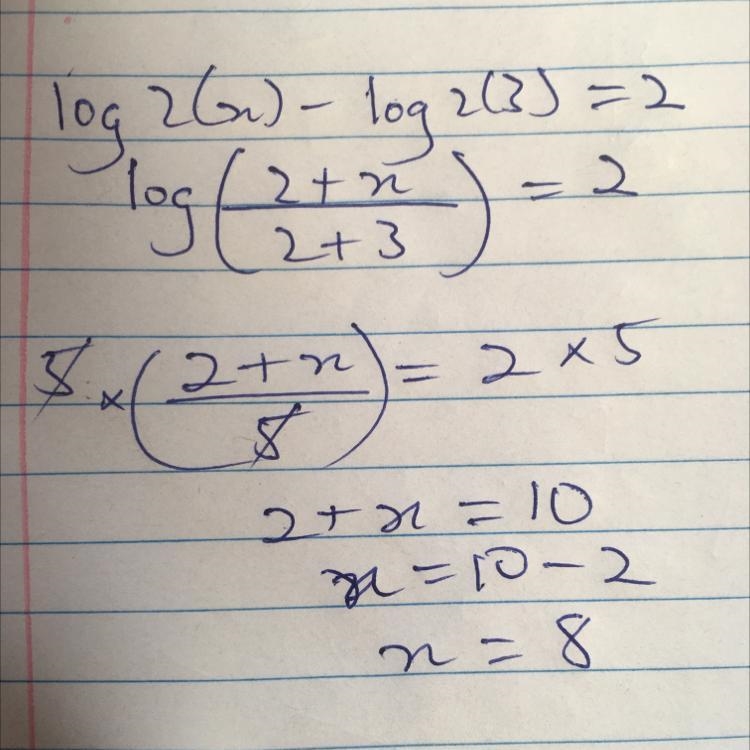 log 2(x) - log 2(3) = 2
log((2 + x)/(2 + 3)) = 2
5 × ((2 + x)/5) = 2 × 5
2 + x = 10
x = 10 - 2
x = 8